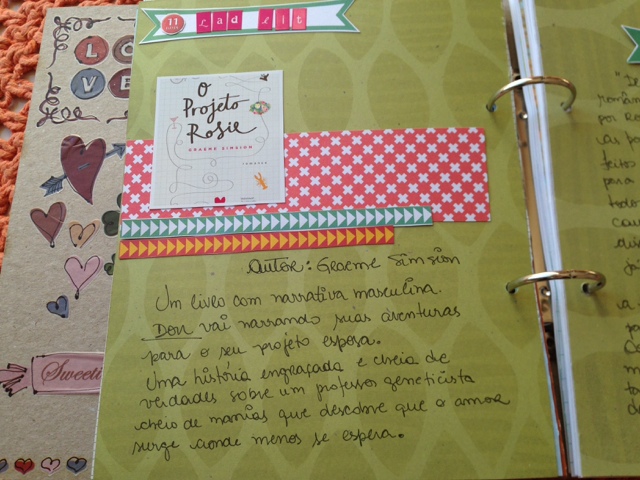 LOVE
11
Lad Lit
O
Projeto
Rosie
GRAEME SIMSION
romance
Autor: Graeme Simsion
Um livro com narrativa masculina.
Don vai narrando suas aventuras
para o seu projeto esposa.
Uma história engraçada e cheia de
verdades sobre um professor geneticista
cheio de manias que descobre que o amor
surge aonde menos se espera.
Sweeti
por Ro
para
todo